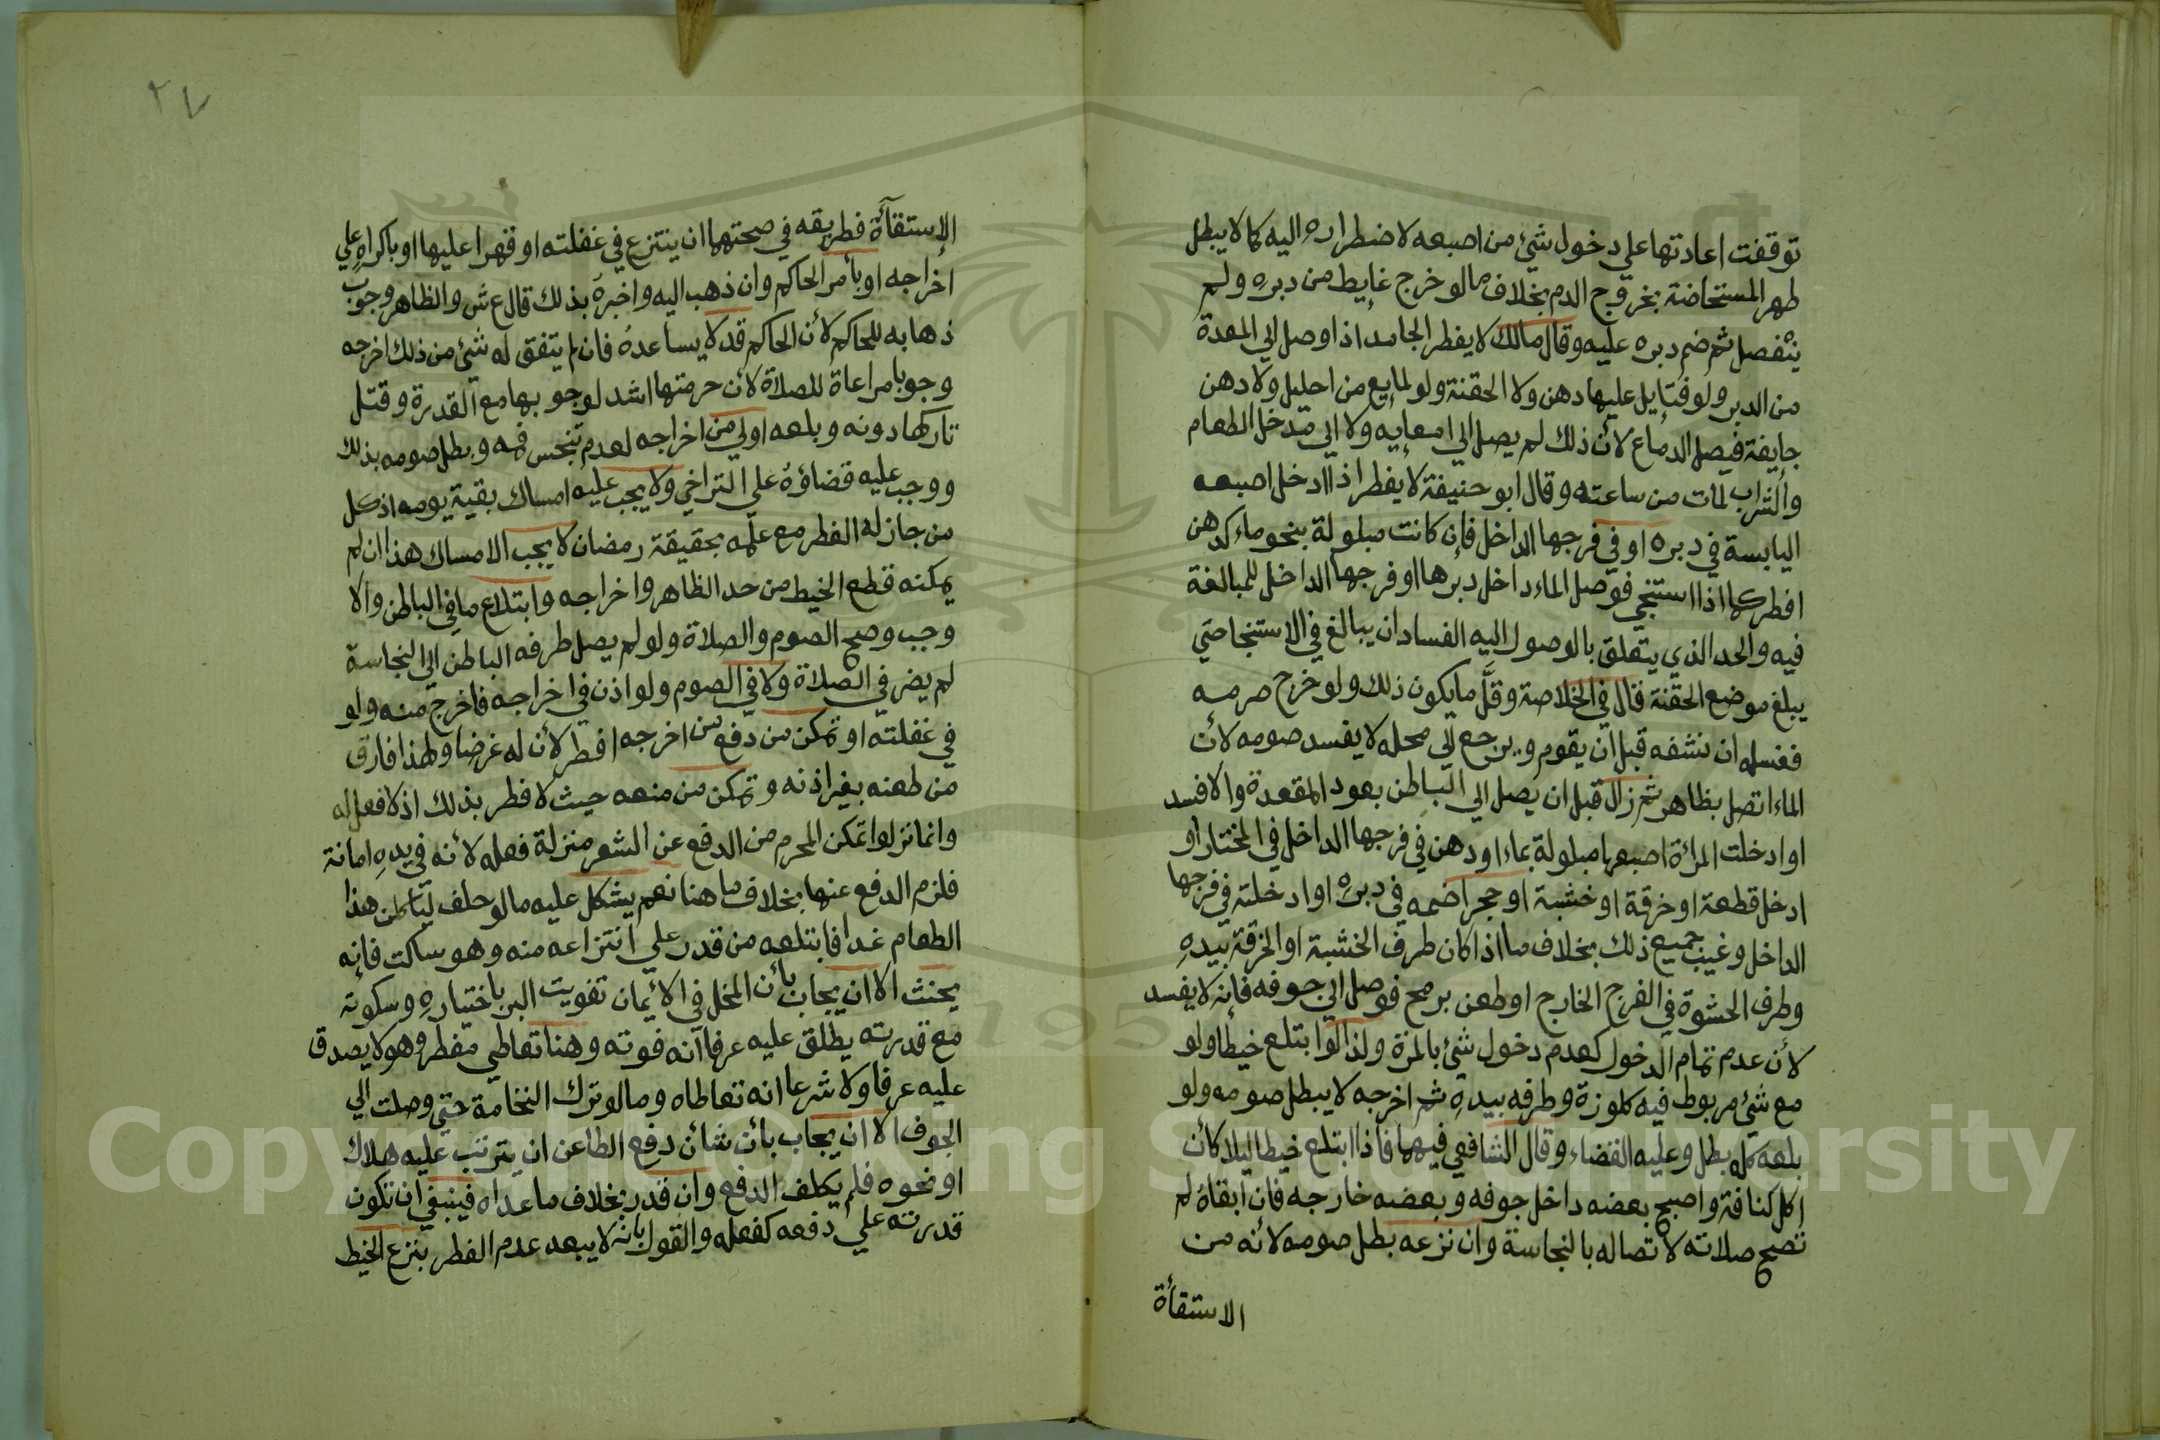 توقفت اعادتها علي دخول شئ من اصبعه لاضطراره اليه كما لا يبطل
طهر المستحاضة بخروج الدم بخلاف ما لو خرج غايط من دبره ولم
ينفصل ثم ضم دبره عليه وقال مالك لا يفطر الجامد اذا وصل الي المعدة
من الدبر ولو فتايل عليها دهن ولا الحقنة ولو لمايع من احليل ولا دهن
جايفة فيصل الدماغ لأن ذلك لم يصل الي امعايه ولا الي مدخل الطعام
والشراب لمات من ساعته وقال ابو حنيفة لا يفطر اذا ادخل اصبعه
اليابسة في دبره او في فرجها الداخل فإن كانت مبلولة بنحو ماء كدهن
افطر كما اذا استنجي فوصل الماء داخل دبرها او فرجها الداخل للمبالغة
فيه والحد الذي يتعلق بالوصول اليه الفساد ان يبالغ في الاستنجا حتي
يبلغ موضع الحقنة قال في الخلاصة وقلَّ ما يكون ذلك ولو خرج صرمه
فغسله ان نشفه قبل ان يقوم ويرجع الي محله لا يفسد صومه لأن
الماء اتصل بظاهر ثم زال قبل ان يصل الي الباطن بعود المقعدة والا فسد
او ادخلت المرأة اصبعها مبلولة بماء او دهن في فرجها الداخل في المختار او
ادخل قطعة او خرقة او خشبة او حجرا ضمه في دبره او ادخلته في فرجها
الداخل وغيب جميع ذلك بخلاف ما اذا كان طرف الخشبة او الخرقة بيده
وطرف الحشوة في الفرج الخارج او طعن برمح فوصل الي جوفه فانه لا يفسد
لأن عدم تمام الدخول كعدم دخول شئ بالمرة ولذا لو ابتلع خيطا ولو
مع شئ مربوط فيه كلوزة وطرفه بيده ثم اخرجه لا يبطل صومه ولو
بلعه كله بطل وعليه القضاء وقال الشافعي فيهما فاذا ابتلع خيطا ليلا كأن
اكل كنافة واصبح بعضه داخل جوفه وبعضه خارجه فان ابقاه لم
تصح صلاته لاتصاله بالنجاسة وان نزعه بطل صومه لأنه من
الاستقأة
٢٧
الاستقأة فطريقه في صحتهما ان ينتزع في غفلته او قهرا عليها او باكراه علي
اخراجه او بأمر الحاكم وان ذهب اليه واخبره بذلك قال ع ش والظاهر وجوب
ذهابه للحاكم لأن الحاكم قد لا يساعده فان لم يتفق له شئ من ذلك اخرجه
وجوبا مراعاة للصلاة لأن حرمتها اشد لوجوبها مع القدرة وقتل
تاركها دونه وبلعه اولي من اخراجه لعدم تنجس فمه وبطل صومه بذلك
ووجب عليه قضاؤه علي التراخي ولا يجب عليه امساك بقية يومه اذ كل
من جاز له الفطر مع علمه بحقيقة رمضان لا يجب الامساك هذا ان لم
يمكنه قطع الخيط من حد الظاهر واخراجه وابتلاع ما في الباطن والا
وجب وصح الصوم والصلاة ولو لم يصل طرفه الباطن الي النجاسة
لم يضر في الصلاة ولا في الصوم ولو اذن في اخراجه فاخرج منه ولو
في غفلته او تمكن من دفع من اخرجه افطر لأن له غرضا ولهذا فارق
من طعنه بغير اذنه وتمكن من منعه حيث لا فطر بذلك اذ لا فعل له
وانما نزلوا تمكن المحرم من الدفع عن الشعر منزلة فعله لأنه في يده امانة
فلزم الدفع عنها بخلاف ما هنا نعم يشكل عليه ما لو حلف ليأكلن هذا
الطعام غدا فابتلعه من قدر علي انتزاعه منه وهو ساكت فإنه
يحنث الا ان يجاب بأن المخل في الأيمان تفويت البر باختياره وسكوته
مع قدرته يطلق عليه عرفا انه فوته وهنا تعاطي مفطر وهو لا يصدق
عليه عرفا ولا شرعا انه تعاطاه وما لو ترك النخامة حتي وصلت الي
الجوف الا ان يجاب بأن شأن دفع الطاعن ان يترتب عليه هلاك
او نحوه فلم يكلف الدفع وان قدر بخلاف ما عداه فينبغي ان تكون
قدرته علي دفعه كفعله والقول بأنه لا يبعد عدم الفطر بنزع الخيط
Copyright © King Saud University